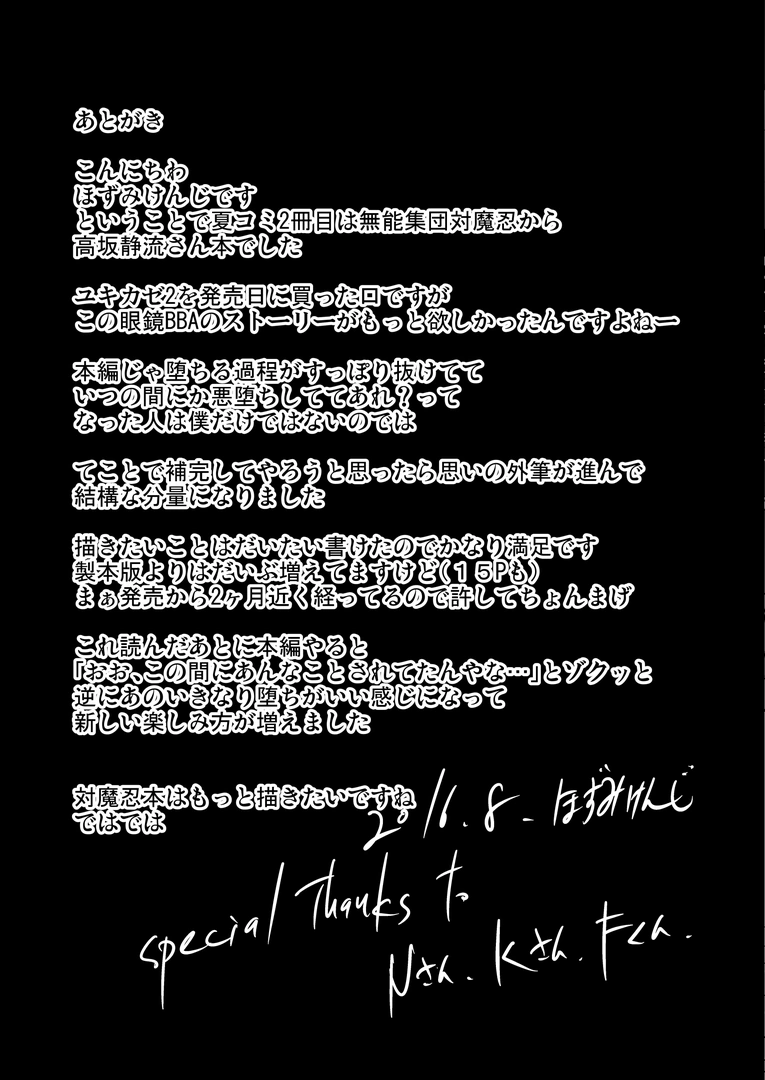 あとがき
こんにちわ
ほずみけんじです
ということで夏コミ2冊目は無能集団対魔忍から
高坂静流さん本でした
ユキカゼ2を発売日に買った口ですが
この眼鏡BBAのストーリーがもっと欲しかったんですよねー
本編じゃ堕ちる過程がすっぽり抜けてて
いつの間にか悪堕ちしててあれ？って
なった人は僕だけではないのでは
てことで補完してやろうと思ったら思いの外筆が進んで
結構な分量になりました
描きたいことはだいたい書けたのでかなり満足です
製本版よりはだいぶ増えてますけど（１５Pも）
まぁ発売から2ヶ月近く経ってるので許してちょんまげ
これ読んだあとに本編やると
「おお、この間にあんなことされてたんやな…」とゾクッと
逆にあのいきなり堕ちがいい感じになって
新しい楽しみ方が増えました
対魔忍本はもっと描きたいですね
ではでは
2016.8. ほずみけんじ
special Thanks to
Nさん. Kさん. Fくん.